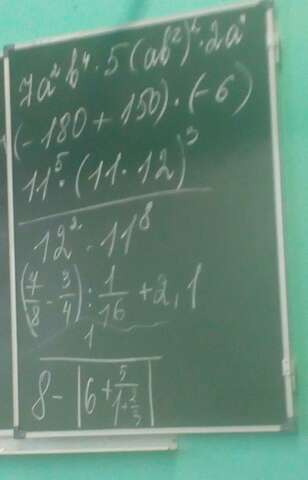 7a²b⁴ · 5(ab²)² · 2a
(-180 + 150) · (-6)
11⁵ · (11 · 12)³
12² · 11⁸
(7/8 - 3/4) : 1/16 + 2,1
1
8 - |6 + 5/(1 + 2/3)|